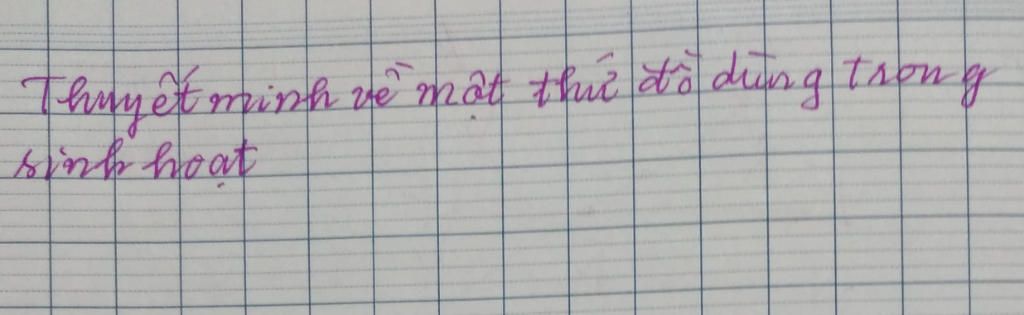 Thuyết minh về một thứ đồ dùng trong
sinh hoạt